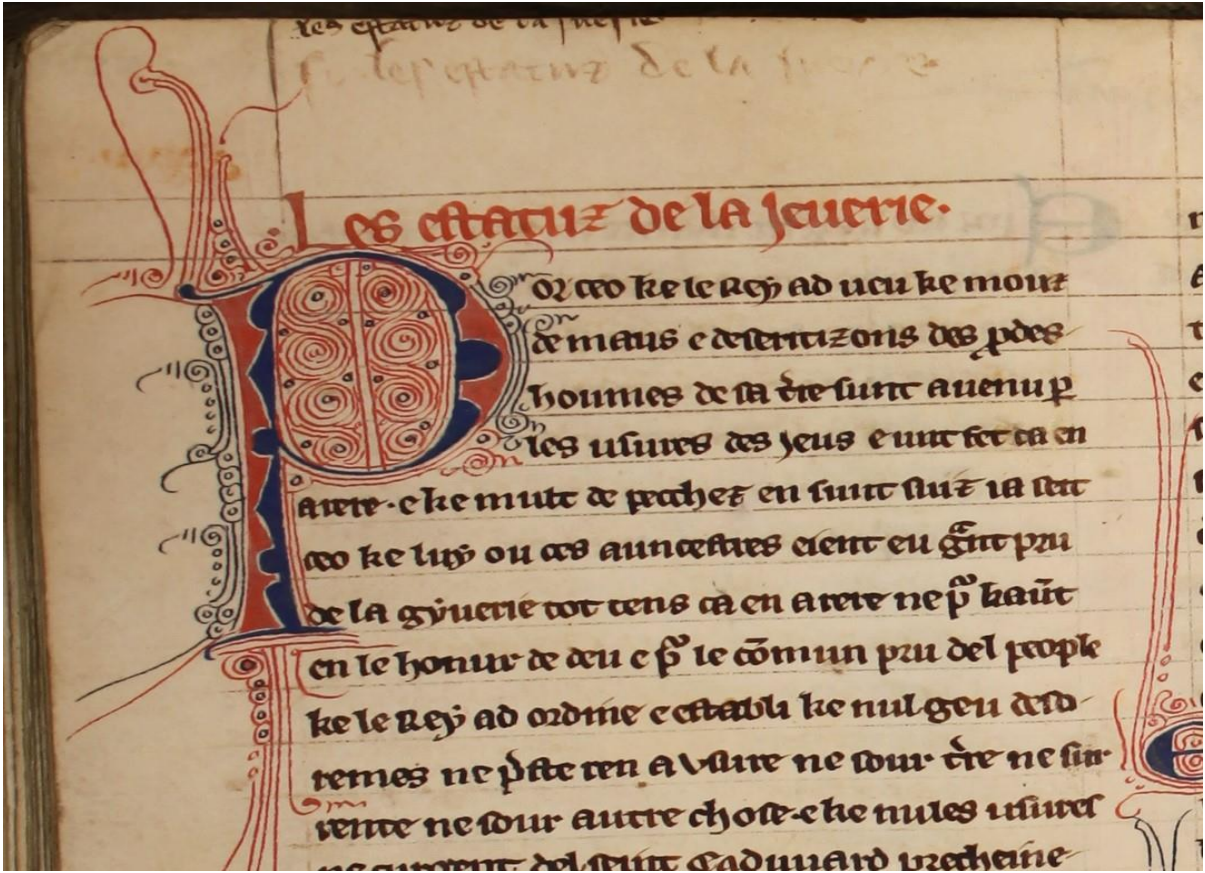 les estatuz de la juerie
les estatuz de la
Les estatuz de la Jeuerie.
Por ceo ke le Rey ad ueu ke mouz
de maus e desericizons des ꝓdes
houmes de sa t̄re sunt auenu ꝑ
les usures des Jeus e unt fet ca en
arere . e ke mult de pecchez en sunt siuz ia seit
ceo ke luy ou ces auncestres eient eu gᵃnt pru
de la gyuerie tot tens ca en arere ne pᵃ kaūt
en le honur de deu e pᵃ le cōmun pru del people
ke le Rey ad ordine e establi ke nul geu deso
remes ne p̄ste ren a vsure ne sour t̄re ne sur
rente ne sour autre chose . e ke nules usures
ne curgent del seint Eaduuard precheine